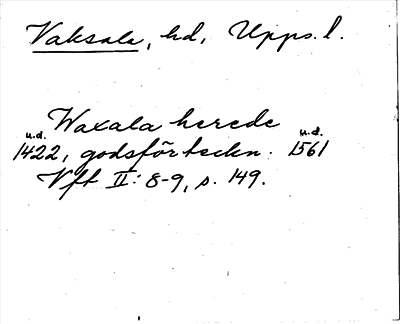 Vaksala, hd, Upps. l.
Waxala herede
u.d. u.d.
1422, godsförteckn. 1561
Vft II: 8-9, s. 149.